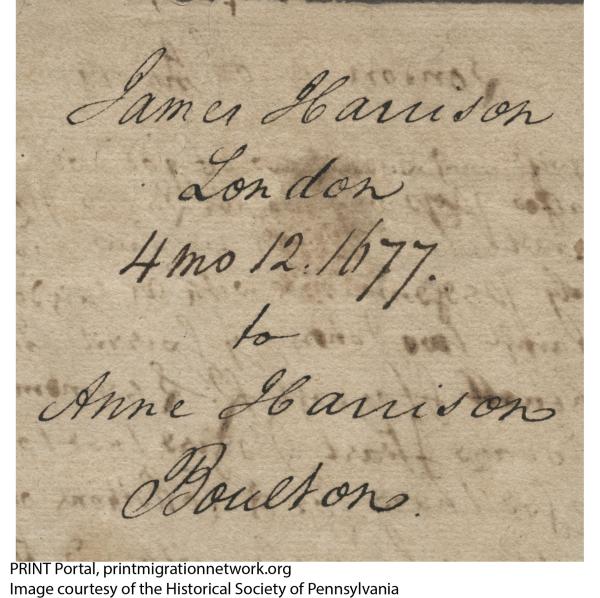 James Harrison
London
4 mo 12. 1677.
to
Anne Harrison
Boulton.
PRINT Portal, printmigrationnetwork.org
Image courtesy of the Historical Society of Pennsylvania